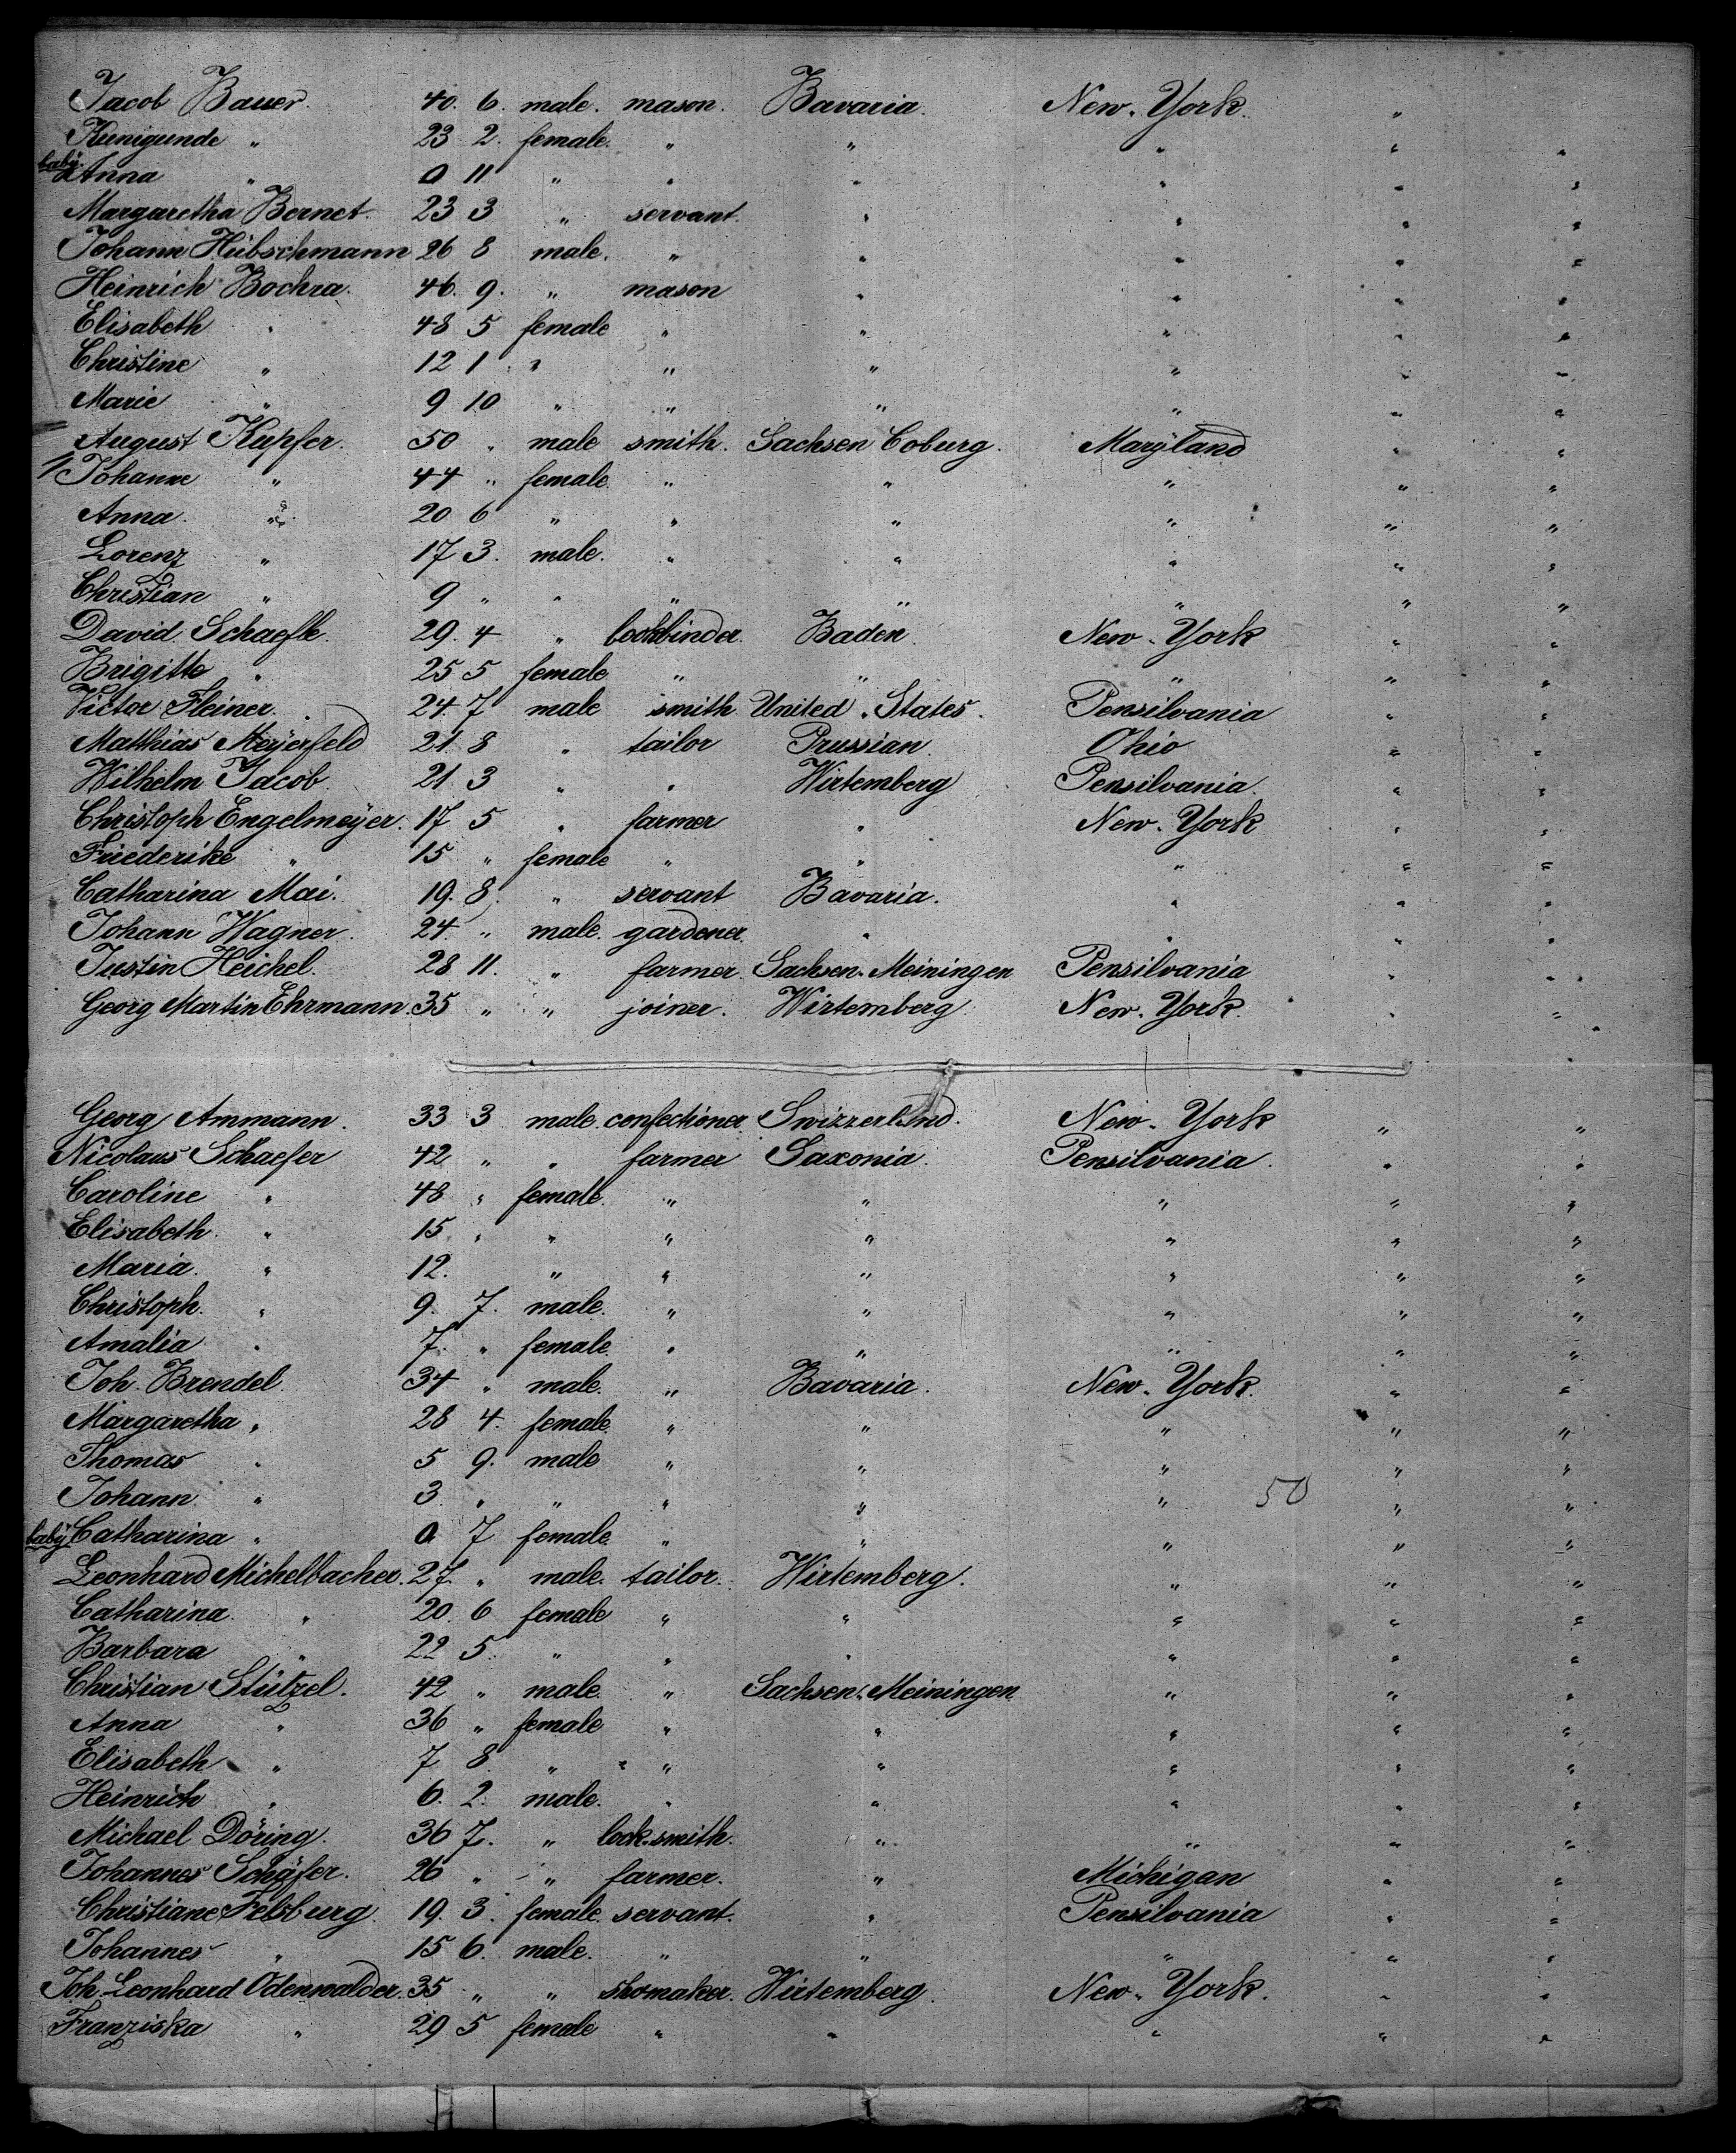 Jacob Bauer. 40. 6. male. mason. Bavaria. New-York. "
Kunigunde " 23 2. female. " " " " "
baby Anna " 0 11 " " " " " "
Margaretha Bernet. 23 3 " servant. " " " "
Johann Hübschmann 26 8 male. " " " " "
Heinrich Bochra. 46. 9. " mason " " " "
Elisabeth " 48 5 female " " " " "
Christine " 12 1 " " " " " "
Marie " 9 10 " " " " " "
August Kupfer. 50 " male smith. Sachsen Coburg. Maryland " "
Johanne " 44 " female. " " " " "
Anna " 20 6 " " " " " "
Lorenz " 17 3. male. " " " " "
Christian " 9 " " " " " " "
David Schaefle. 29. 4 " bookbinder. Baden New-York " "
Brigitte " 25 5 female " " " " "
Victor Fleiner. 24. 7 male smith United States. Pensilvania " "
Mathias Meÿerfeld 21 8 " tailor Prussian. Ohio " "
Wilhelm Jacob. 21. 3 " " Wirtemberg Pensilvania. " "
Christoph Engelmeÿer. 17 5 " farmer " New-York " "
Friederike " 15 " female " " " " "
Catharina Mai. 19. 8. " servant Bavaria. " " "
Johann Wagner. 24. " male. gardener. " " " "
Justin Heichel. 28 11. " farmer. Sachsen-Meiningen Pensilvania " "
Georg Martin Ehrmann. 35 " " joiner. Wirtemberg New-York. " "
Georg Ammann. 33 3 male. confectioner Swizzerland. New-York " "
Nicolaus Schaefer 42 " " farmer Saxonia. Pensilvania. " "
Caroline " 48 " female. " " " " "
Elisabeth. " 15. " " " " " " "
Maria. " 12. " " " " " "
Christoph. " 9. 7. male. " " " " "
Amalia " 7. " female. " " " " "
Joh. Brendel. 34 " male. " Bavaria. New-York. " "
Margaretha " 28 4. female. " " " " "
Thomas " 5 9. male " " " " "
Johann. " 3. " " " " " 50 " "
baby Catharina " 0 7 female. " " " " "
Leonhard Michelbacher. 27. " male. tailor. Wirtemberg. " " "
Catharina. " 20. 6 female " " " " "
Barbara " 22 5. " " " " " "
Christian Stützel. 42 " male. " Sachsen-Meiningen. " " "
Anna " 36 " female " " " " "
Elisabeth " 7 8 " " " " " "
Heinrich " 6. 2. male. " " " " "
Michael Döring. 36 7. " lock-smith. " " " "
Johannes Schäfer. 26 " " farmer. " Michigan " "
Christiane Felsburg. 19. 3. female. servant. " Pensilvania " "
Johannes " 15 6. male. " " " " "
Joh. Leonhard Odenwalder. 35 " " shomaker. Wirtemberg. New-York. " "
Franziska " 29 5 female " " " " "